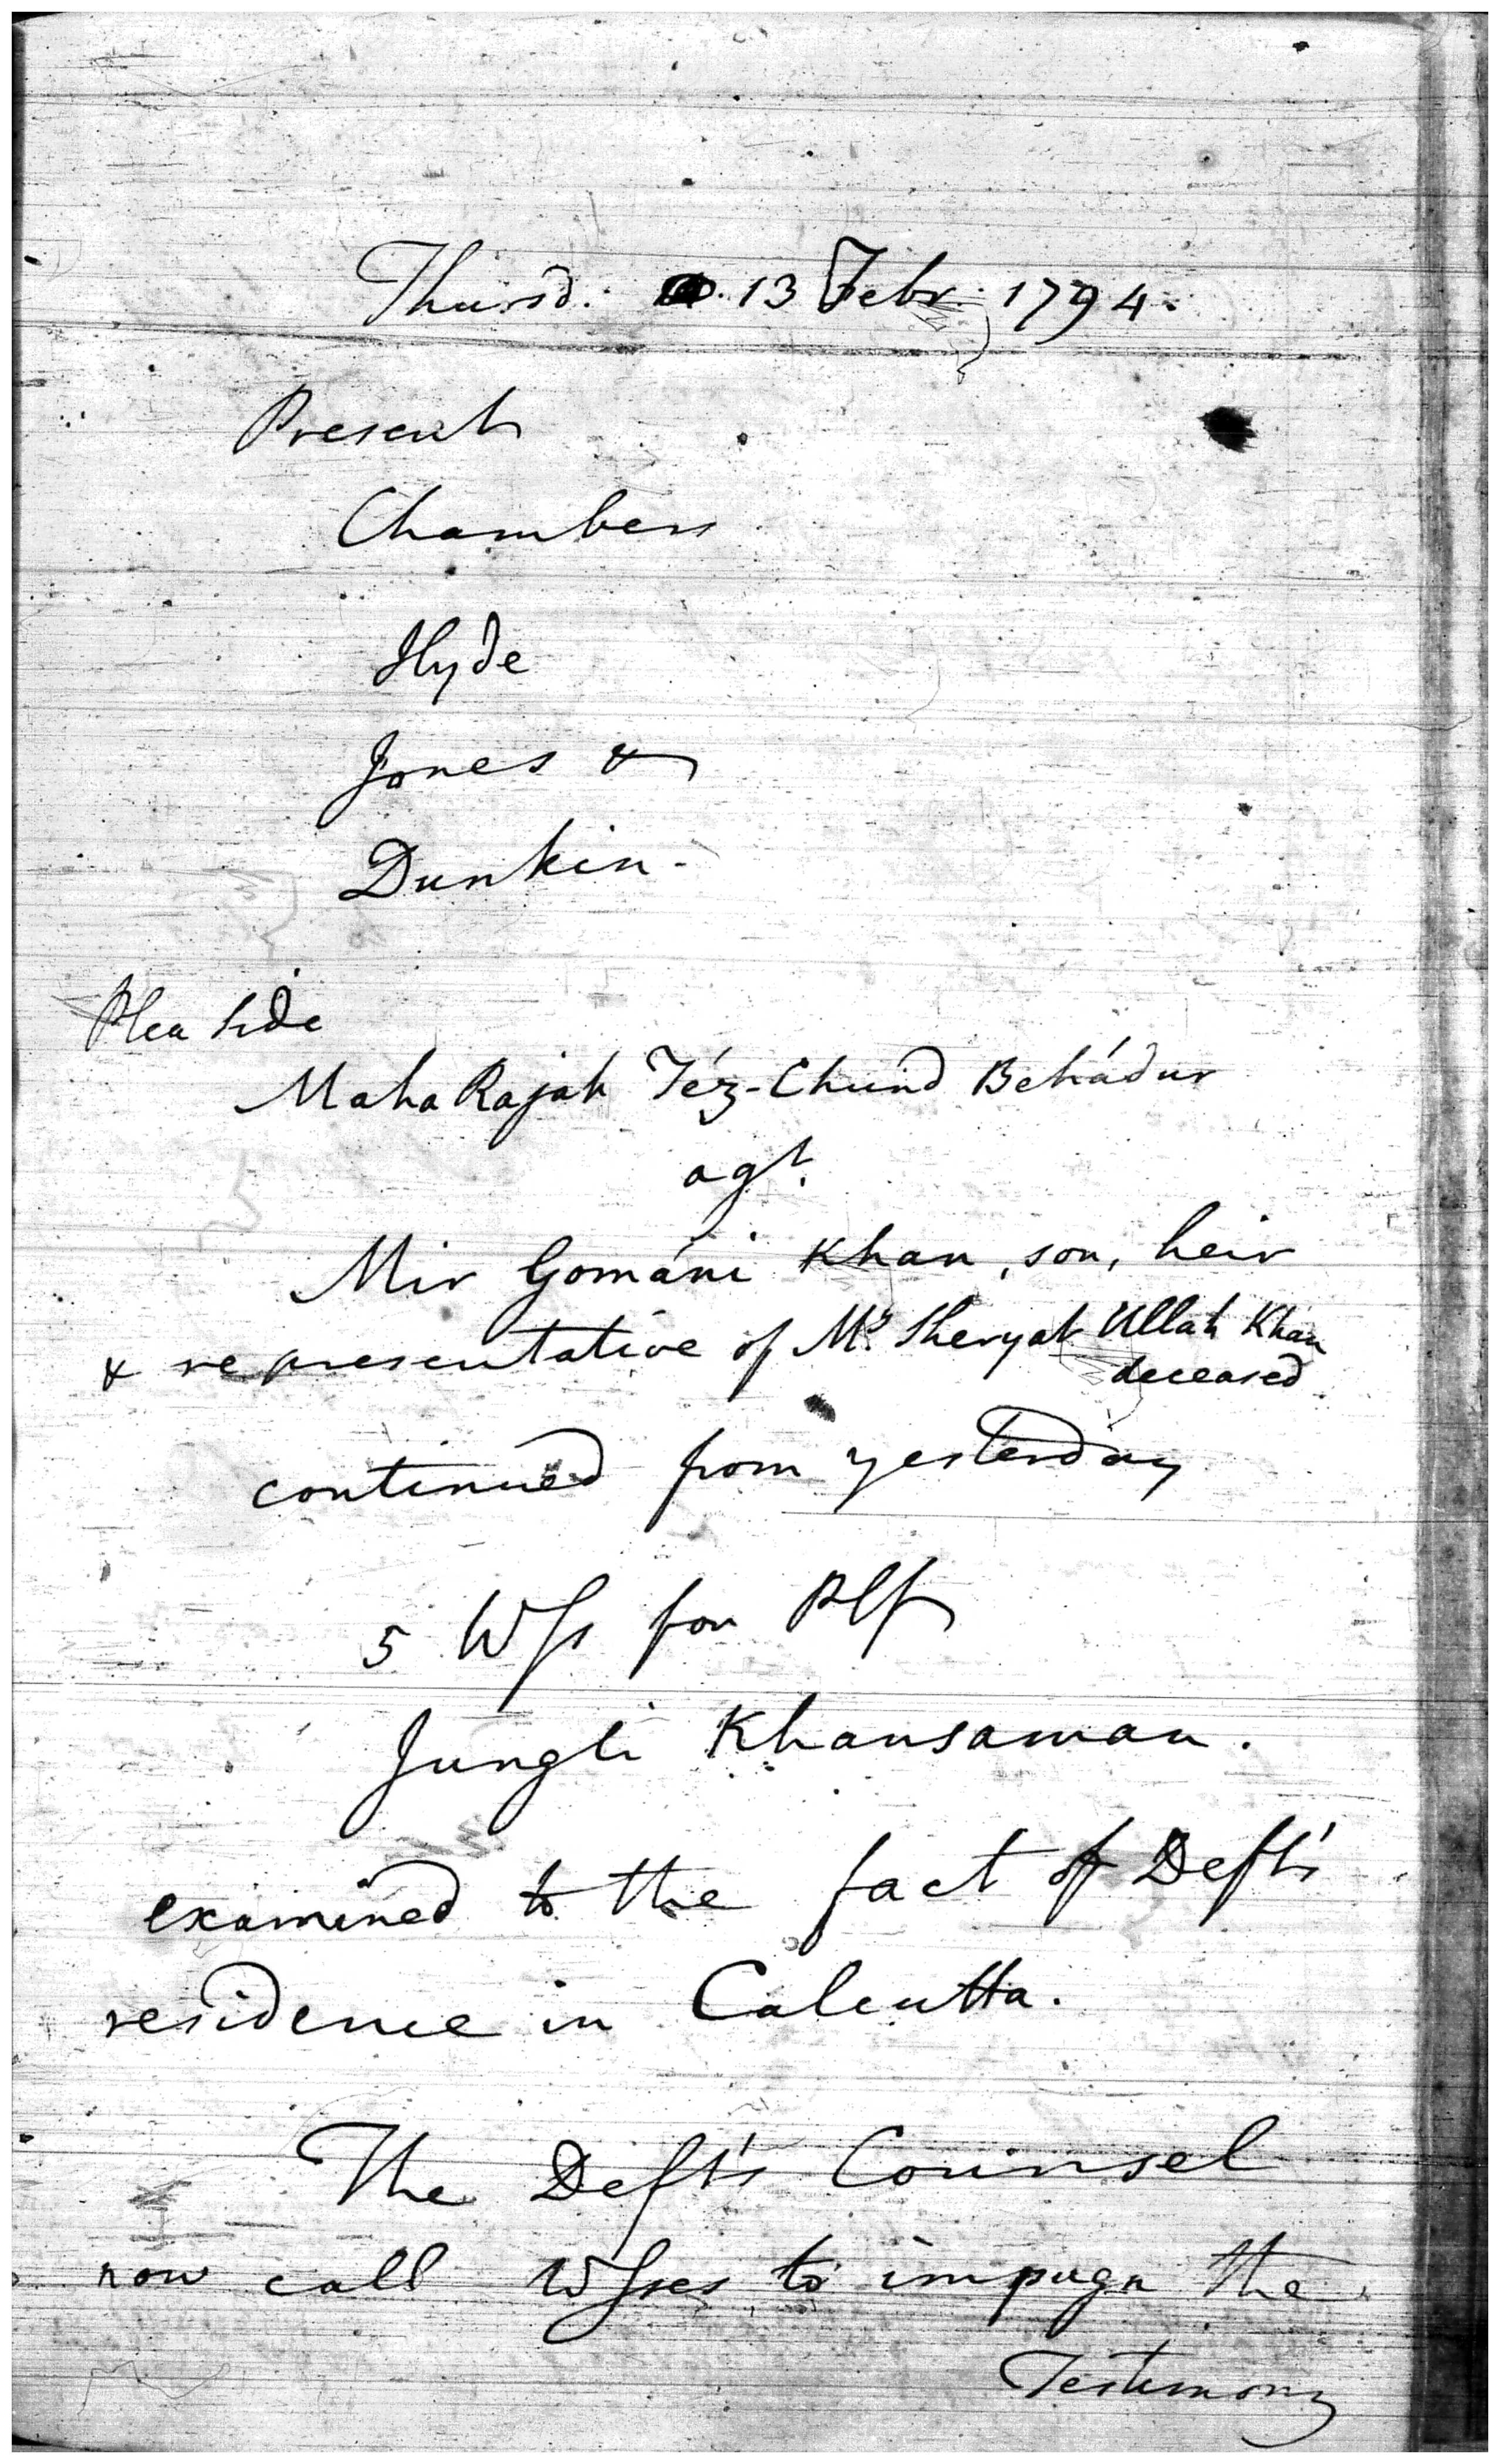 Thursd. 13 Febr. 1794.
Present
Chambers
Hyde
Jones &
Dunkin.
Plea Side
Maha Rajah Téz-Chund Behádur
agt.
Mir Gománi Khan, son, heir
& representative of Mr. Sheryat Ullah Khan
deceased
continued from yesterday
5 Wſs for Plf
Jungli Khansaman.
examined to the fact of Deft's
residence in Calcutta.
The Deft's Counsel
now call Wſses to impugn the
Testimony